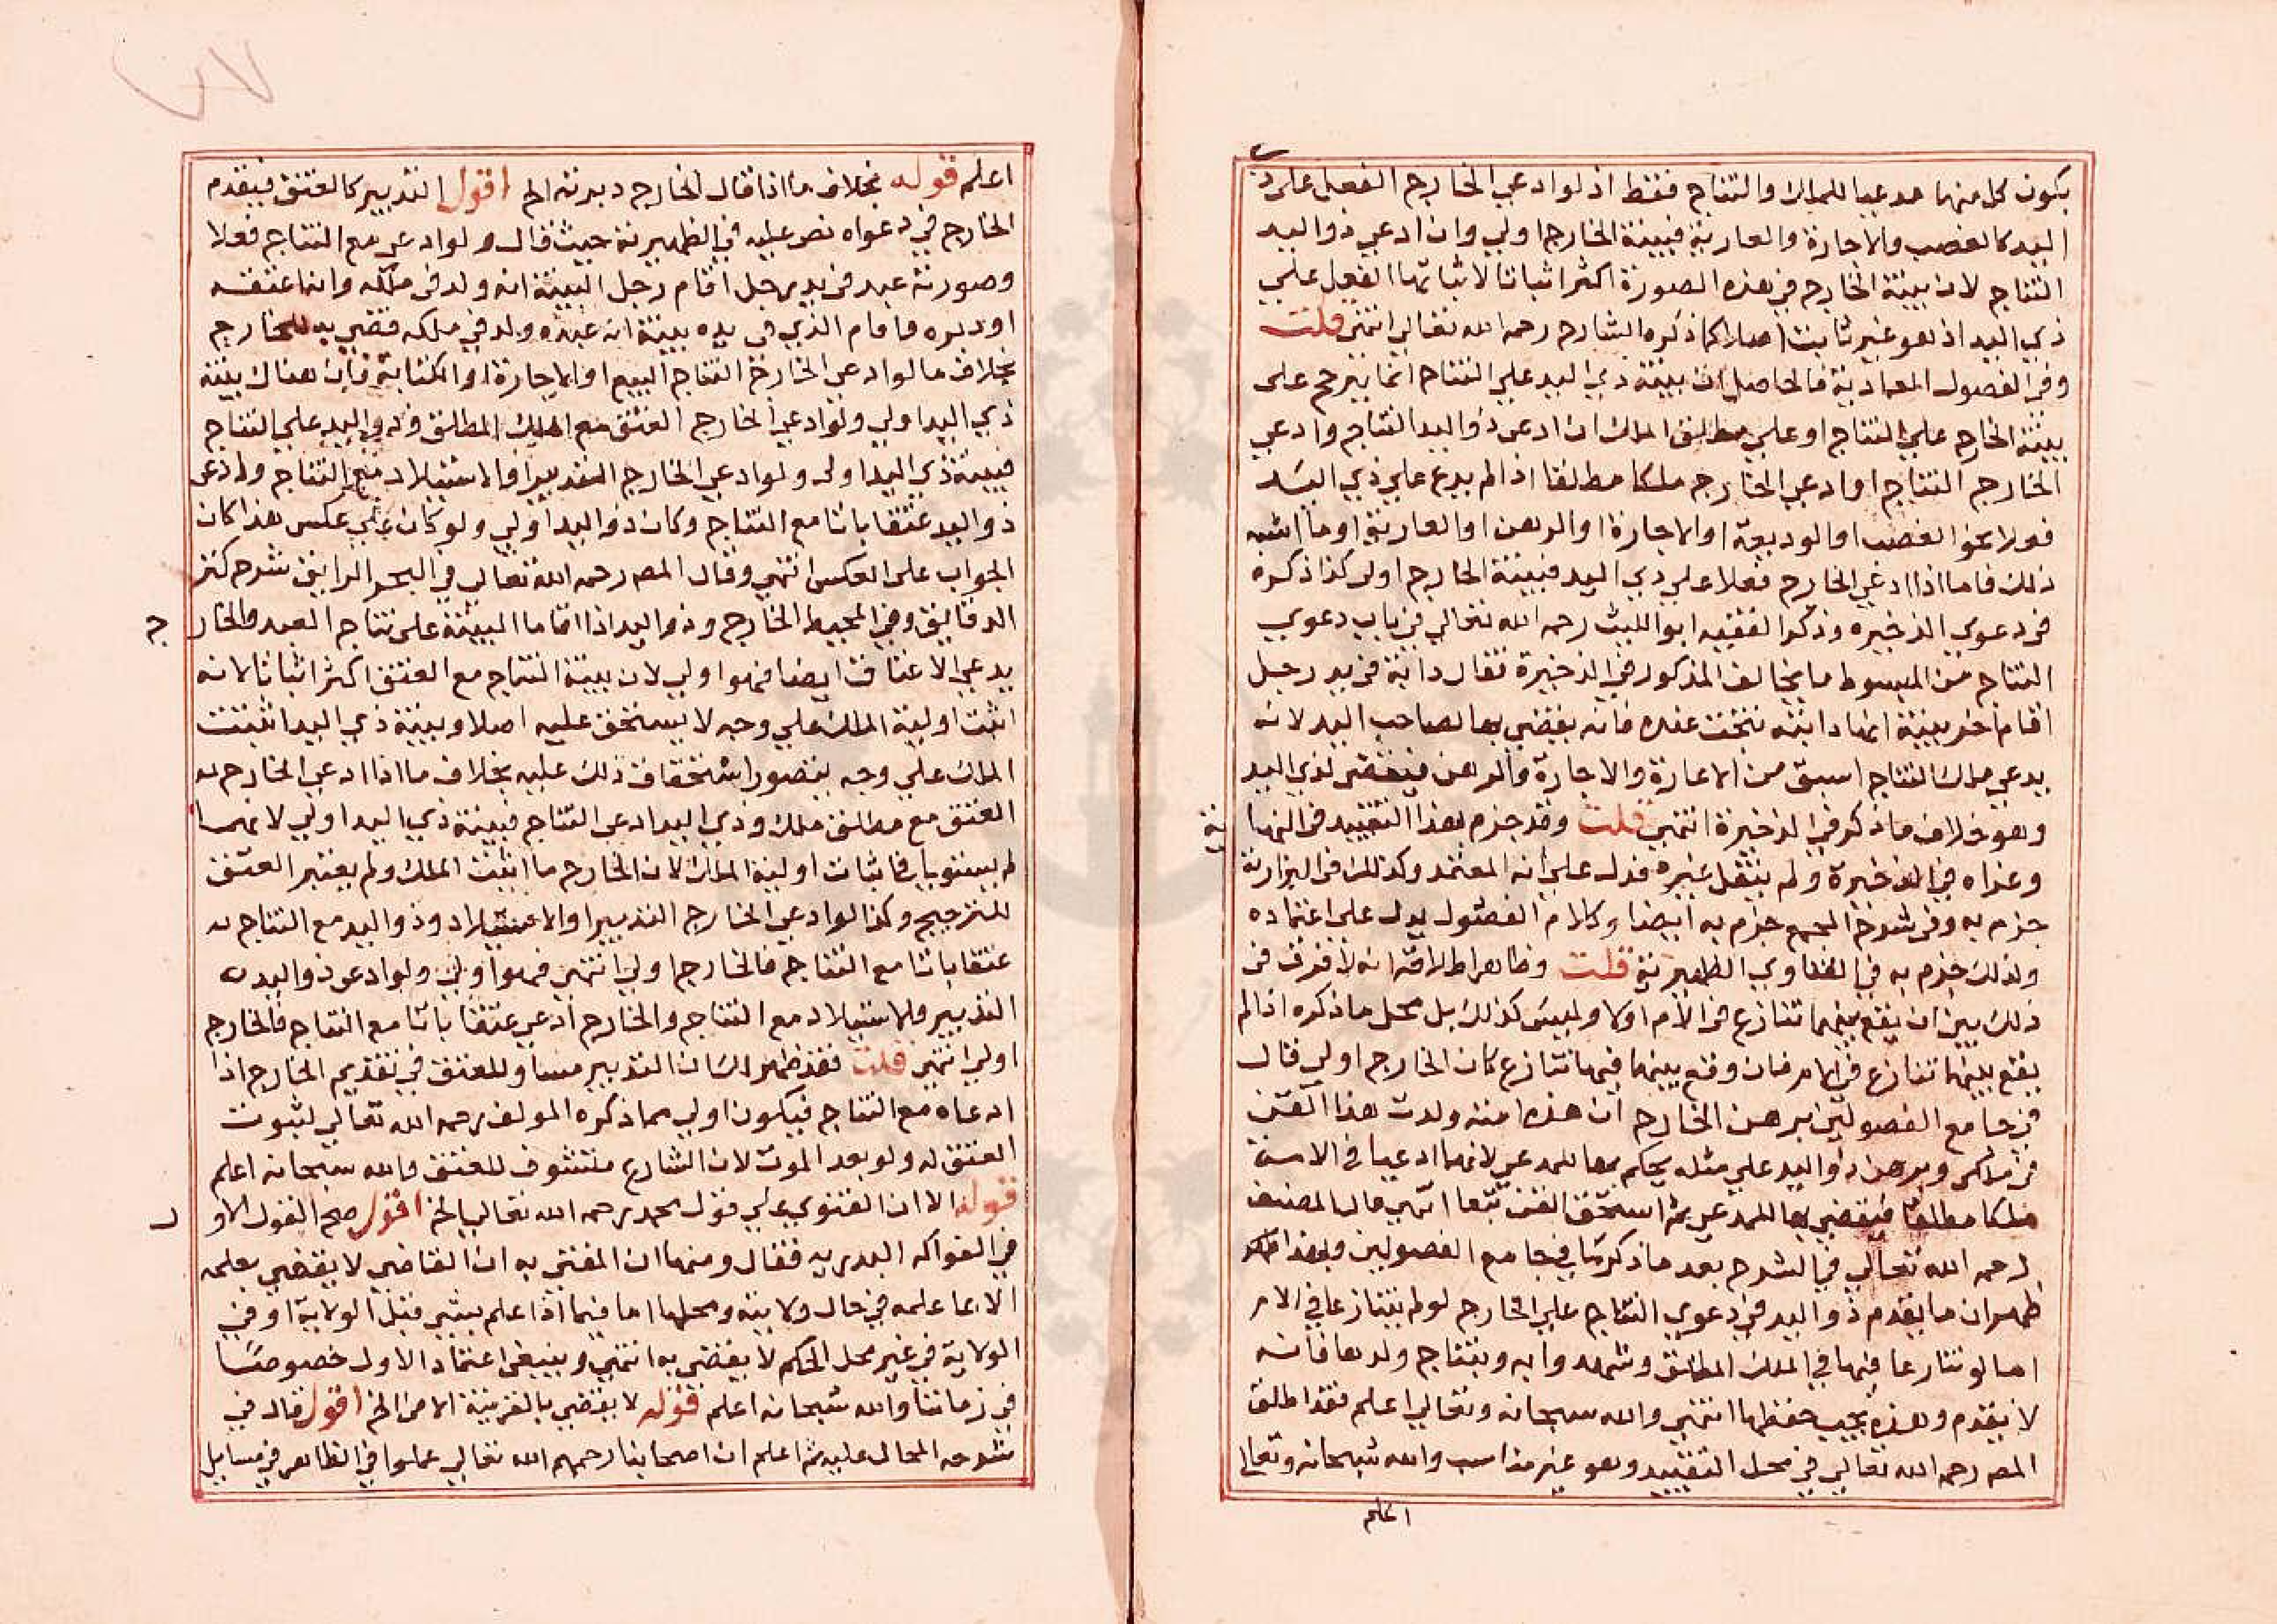 يكون كل منهما مدعيا للملك والنتاج فقط اذ لو ادعي الخارج الفعل علي ذي
اليد كالغصب والاجارة والعارية فبينة الخارج اولي وان ادعي ذو اليد
النتاج لان بينة الخارج في هذه الصورة اكثر اثباتا لاثباتها الفعل علي
ذي اليد اذ هو غير ثابت اصلا كما ذكره الشارح رحمه الله تعالي انتهي قلت
وفي الفصول العمادية فالحاصل ان بينة ذي اليد علي النتاج انما يترجح علي
بينة الخارج علي النتاج او علي مطلق الملك ان ادعي ذو اليد النتاج وادعي
الخارج النتاج او ادعي الخارج ملكا مطلقا اذا لم يدع علي ذي اليد
فعلا نحو الغصب او الوديعة او الاجارة او الرهن او العارية او ما اشبه
ذلك فاما اذا ادعي الخارج فعلا علي ذي اليد فبينة الخارج اولي كذا ذكره
في دعوي الذخيره وذكر الفقيه ابو الليث رحمه الله تعالي في باب دعوي
النتاج من المبسوط ما يخالف المذكور في الذخيرة فقال دابة في يد رجل
اقام اخر بينة انها دابته نتجت عنده فانه يقضي بها لصاحب اليد لانه
يدعي ملك النتاج اسبق من الاعارة والاجارة والرهن فيقضي لذي اليد
وهو خلاف ما ذكر في الذخيرة انتهي قلت وقد جزم بهذا التقييد في النها
ية
وعزاه في الذخيرة ولم ينقل غيره فدل علي انه المعتمد وكذلك في البزازية
جزم به وفي شرح المجمع جزم به ايضا وكلام الفصول يدل علي اعتماده
ولذلك جزم به في الفتاوي الظهيرية قلت وظاهر اطلاقه انه لا فرق في
ذلك بين ان يقع بينهما تنازع في الام اولا وليس كذلك بل محل ما ذكره اذا لم
يقع بينهما تنازع في الام فان وقع بينهما فيها تنازع كان الخارج اولي قال
في جامع الفصولين برهن الخارج ان هذه امته ولدت هذا القن
في ملكي وبرهن ذو اليد علي مثله يحكم بها للمدعي لانهما ادعيا في الامة
ملكا مطلقا فيقضي بها للمدعي ثم استحق القن تبعا انتهي قال المصنف
رحمه الله تعالي في الشرح بعد ما ذكر ما في جامع الفصولين وبهذا
ظهر ان ما يقدم ذو اليد في دعوي النتاج علي الخارج لو لم يتنازعا في الام
اما لو تنازعا فيها في الملك المطلق وشهدوا به وبنتاج ولدها فانه
لا يقدم وهذه يجب حفظها انتهي والله سبحانه وتعالي اعلم فقد اطلق
المص رحمه الله تعالي في محل التقييد وهو غير مناسب والله سبحانه وتعالي
اعلم
اعلم قوله بخلاف ما اذا قال الخارج دبرته الخ اقول التدبير كالعتق فيقدم
الخارج في دعواه نص عليه في الظهيرية حيث قال ولو ادعي مع النتاج فعلا
وصورته عبد في يد رجل اقام رجل البينة انه ولد في ملكه وانه اعتقه
او دبره فاقام الذي في يده بينة انه عبده ولد في ملكه فقضي به للخارج
بخلاف ما لو ادعي الخارج النتاج البيع او الاجارة او الكتابة فان هناك بينة
ذي اليد اولي ولو ادعي الخارج العتق مع الملك المطلق وذو اليد علي النتاج
فبينة ذي اليد اولي ولو ادعي الخارج التدبير او الاستيلاد مع النتاج وادعي
ذو اليد عتقا باتا مع النتاج وكان ذو اليد اولي ولو كان علي عكس هذا كان
الجواب علي العكس انتهي وقال المص رحمه الله تعالي في البحر الرايق شرح كنز
الدقايق وفي المحيط الخارج وذو اليد اذا اقاما البينة علي نتاج العبد والخار
ج
يدعي الاعتاق ايضا فهو اولي لان بينة النتاج مع العتق اكثر اثباتا لانه
اثبت اولية الملك علي وجه لا يستحق عليه اصلا وبينة ذي اليد اثبتت
الملك علي وجه يتصور استحقاق ذلك عليه بخلاف ما اذا ادعي الخارج
العتق مع مطلق ملك وذي اليد ادعي النتاج فبينة ذي اليد اولي لانهما
لم يستويا في اثبات اولية الملك لان الخارج ما اثبت الملك ولم يعتبر العتق
للترجيح وكذا لو ادعي الخارج التدبير او الاستيلاد وذو اليد مع النتاج
عتقا باتا مع النتاج فالخارج اولي انتهي فهو اولي ولو ادعي ذو اليد
التدبير والاستيلاد مع النتاج والخارج ادعي عتقا باتا مع النتاج فالخارج
اولي انتهي قلت فقد ظهر لك ان التدبير مساو للعتق في تقديم الخارج اذا
ادعاه مع النتاج فيكون اولي مما ذكره المولف رحمه الله تعالي لثبوت
العتق له ولو بعد الموت لان الشارع متشوف للعتق والله سبحانه اعلم
قوله الا ان الفتوي علي قول محمد رحمه الله تعالي الخ اقول صحح القول الاو
ل
في الفواكه البدريه فقال ومنها ان المفتي به ان القاضي لا يقضي بعلمه
الا بما علمه في حال ولايته ومحلها اما فيما اذا علم بشي قبل الولاية او في
الولاية في غير محل الحكم لا يقضي به انتهي وينبغي اعتماد الاول خصوصا
في زماننا والله سبحانه اعلم قوله لا يقضي بالقرينة الا في الخ اقول قال في
شرحه المحال عليه ثم اعلم ان اصحابنا رحمهم الله تعالي عملوا في الظاهر في مسايل